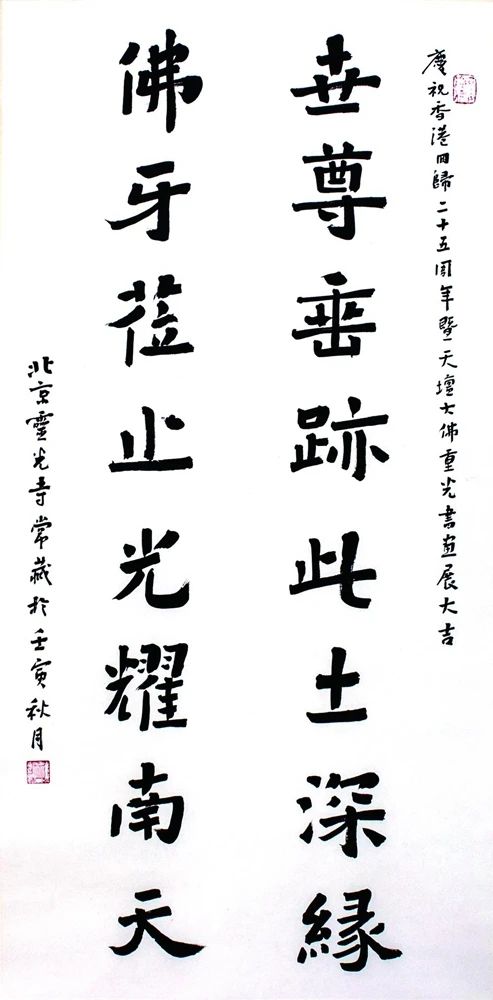 慶祝香港回歸二十五周年暨天壇大佛重光書畫展大吉
世尊垂跡此土深緣
佛牙蒞止光耀南天
北京靈光寺常藏於壬寅秋月